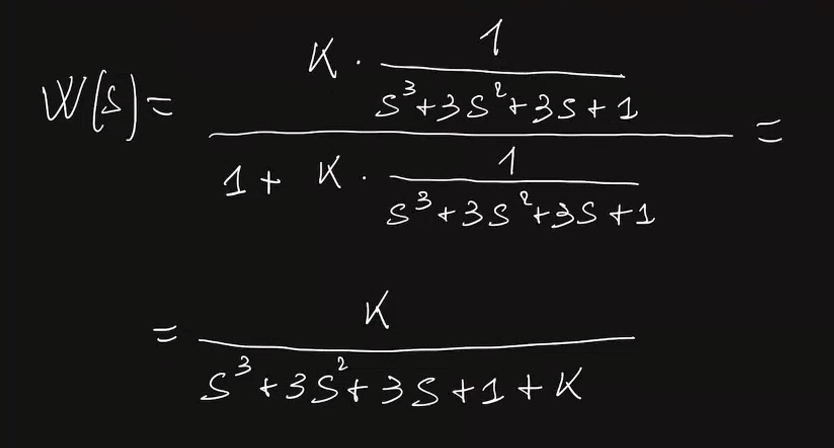 W(s) = \frac{K \cdot \frac{1}{s^3+3s^2+3s+1}}{1 + K \cdot \frac{1}{s^3+3s^2+3s+1}} =
= \frac{K}{s^3+3s^2+3s+1+K}